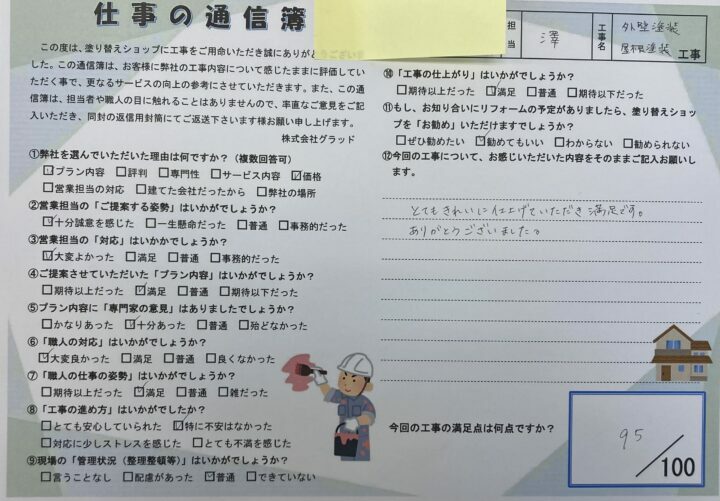 仕事の通信簿
担当
澤
工事名
外壁塗装
屋根塗装 工事
この度は、塗り替えショップに工事をご用命いただき誠にありがと
した。この通信簿は、お客様に弊社の工事内容について感じたままに評価してい
ただく事で、更なるサービスの向上の参考にさせていただきます。また、この通
信簿は、担当者や職人の目に触れることはありませんので、率直なご意見をご記
入いただき、同封の返信用封筒にてご返送下さいます様お願い申し上げます。
株式会社グラッド
①弊社を選んでいただいた理由は何ですか?(複数回答可)
☑プラン内容 □評判 □専門性 □サービス内容 ☑価格
□営業担当の対応 □建てた会社だったから □弊社の場所
②営業担当の「ご提案する姿勢」はいかがでしょうか?
☑十分誠意を感じた □一生懸命だった □普通 □事務的だった
③営業担当の「対応」はいかかでしょうか?
☑大変よかった □満足 □普通 □事務的だった
④ご提案させていただいた「プラン内容」はいかがでしょうか?
□期待以上だった ☑満足 □普通 □期待以下だった
⑤プラン内容に「専門家の意見」はありましたでしょうか?
□かなりあった ☑十分あった □普通 □殆どなかった
⑥「職人の対応」はいかがでしょうか?
☑大変良かった □満足 □普通 □良くなかった
⑦「職人の仕事の姿勢」はいかがでしょうか?
□期待以上だった ☑満足 □普通 □雑だった
⑧「工事の進め方」はいかがでしたか?
□とても安心していられた ☑特に不安はなかった
□対応に少しストレスを感じた □とても不満を感じた
⑨現場の「管理状況(整理整頓等)」はいかがでしょうか?
□言うことなし □配慮があった ☑普通 □できていない
⑩「工事の仕上がり」はいかがでしょうか?
□期待以上だった ☑満足 □普通 □期待以下だった
⑪もし、お知り合いにリフォームの予定がありましたら、塗り替えショッ
プを「お勧め」いただけますでしょうか?
□ぜひ勧めたい ☑勧めてもいい □わからない □勧められない
⑫今回の工事について、お感じいただいた内容をそのままご記入お願いし
ます。
とてもきれいに仕上げていただき満足です。
ありがとうございました。
今回の工事の満足点は何点ですか?
95/100